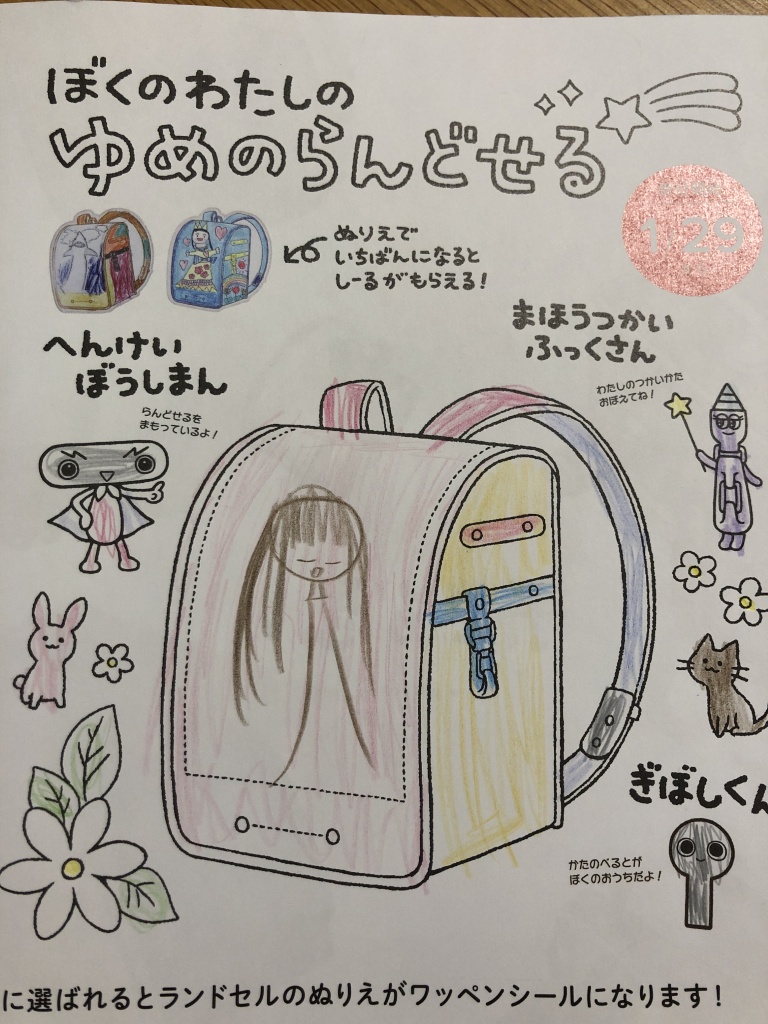 ぼくのわたしの
ゆめのらんどせる
1.29
ぬりえで
いちばんになると
しーるがもらえる!
へんけい
ぼうしまん
らんどせるを
まもっているよ!
まほうつかい
ふっくさん
わたしのつかいかた
おぼえてね!
ぎぼしくん
かたのべるとが
ぼくのおうちだよ!
に選ばれるとランドセルのぬりえがワッペンシールになります!